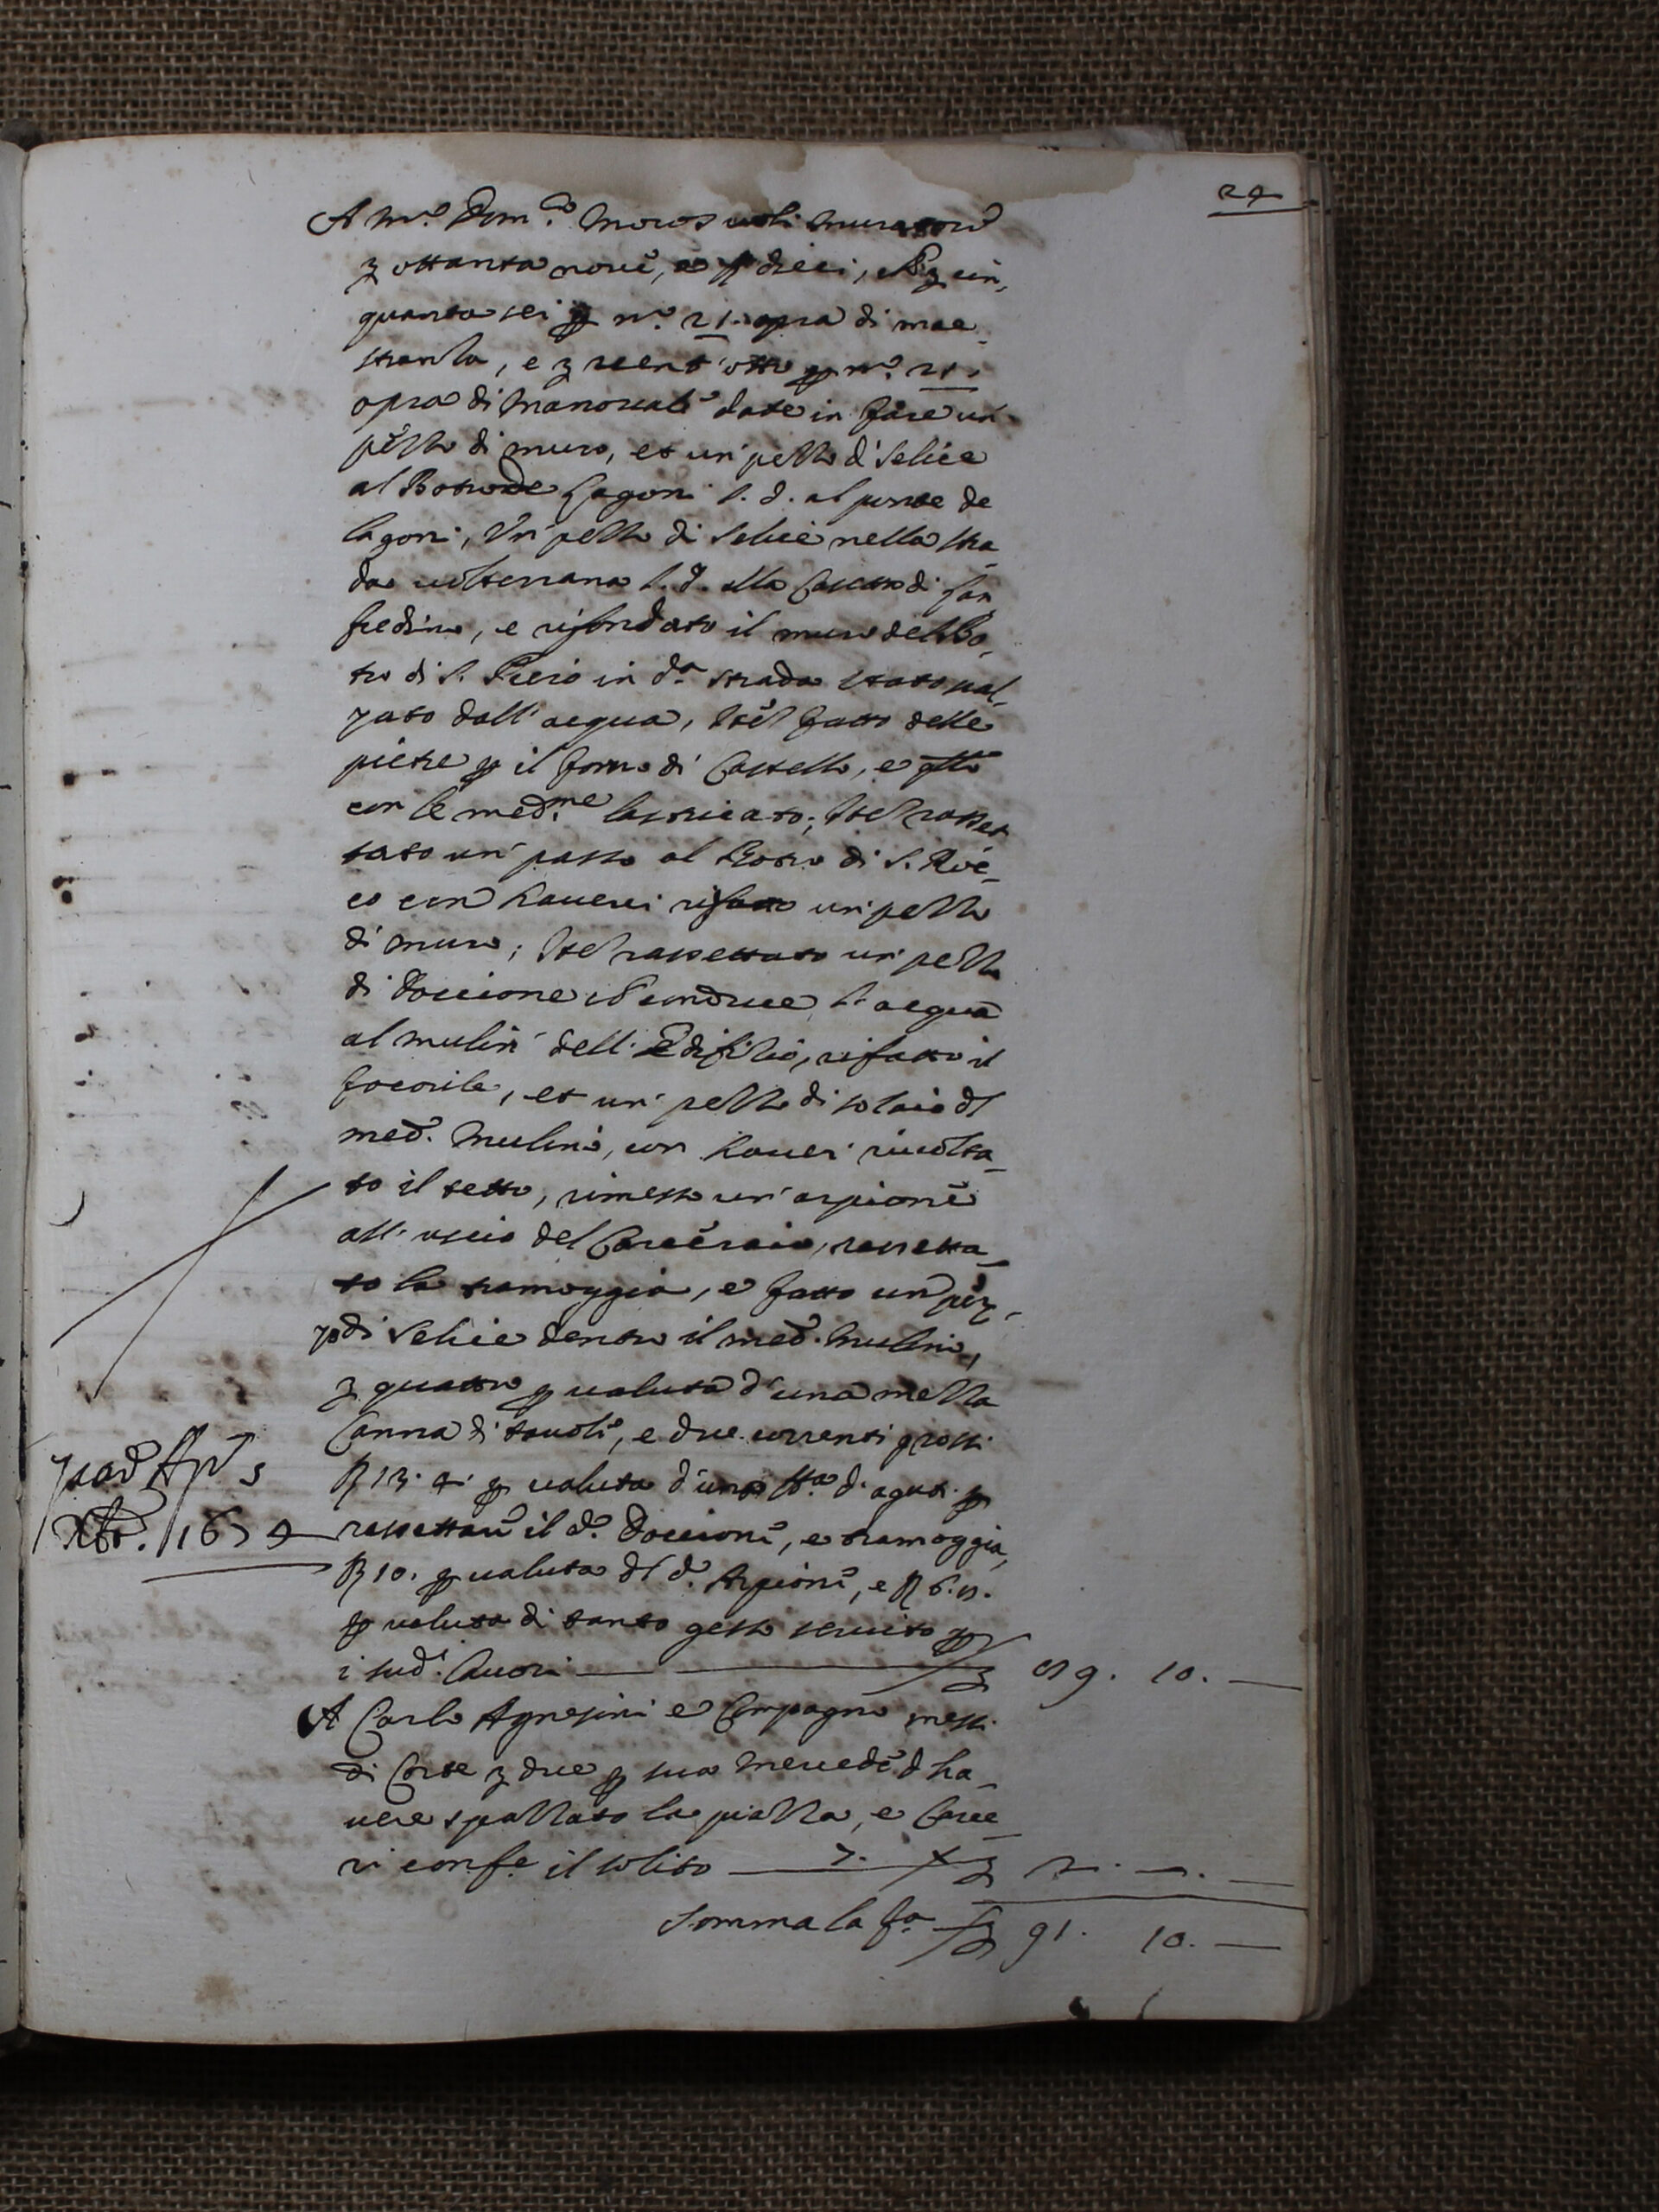 24
A m.º Dom.co muratore
ʒ ottanta nove, e ß dieci, ʒ cin,
quanta sei p n.º 21. opra di mae
stranza, e ʒ trent'otto p n.º 21.
opra di manovale date in fare un
pezzo di muro, et un' pezzo di selice
al Botro de Lagoni l. d. al ponte de
lagoni, Un' pezzo di selice nella stra
da volterrana l. d. alla Casetta di san
fredino, e rifondato il muro del Bo,
tro di S. Piero in d.ª strada stato scal,
zato dall' acqua, Itel fatto delle
pietre p il forno di Castello, e qllo
con le med.me lastricato; Itel rasset
tato un' passo al Botro di S. Roc,
co con haverci rifatto un' pezzo
di muro; Itel rassettato un' pezzo
di doccione conduce l' acqua
al mulin' dell' Edifizio, rifatto il
focorile, et un' pezzo di solaio dl
med.º Mulino, con haver rivolta
to il tetto, rimesso un' arpione
all' uscio del Carceraio, rassetta
to la tramoggia, e fatto un' pez,
zo di selice dentro il med.º Mulino,
ʒ quattro p valuta d' una mezza
Canna di tavole, e due correnti grossi
ß 13. 4. p valuta d' una d' aguti p
rassettare il d.º Doccione, e tramoggia,
ß 10. p valuta dl d.º Arpione, e ß 6. 8.
p valuta di tanto gesso servito p
i sud.i lavori — ʒ 89. 10. —
A Carlo Agnesini e Compagno messi
di Corte ʒ due p sua mercede d ha,
vere spazzato la piazza, e Carce
ri conf.e il solito — ʒ 2. —. —
Somma la fa — ʒ 91. 10. —
pad.º Apº 5
Xbr. 1674